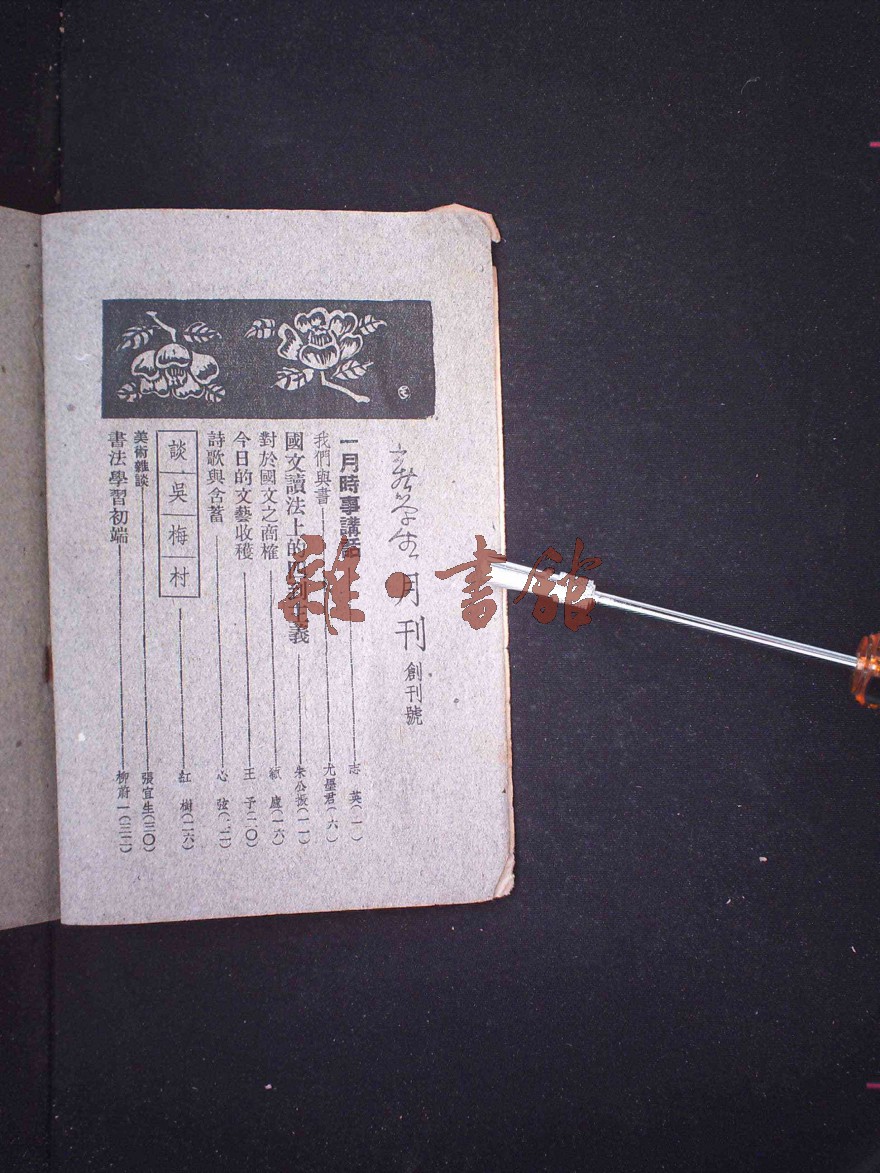 新學生月刊 創刊號
一月時事講話 志英(一)
我們與書 尤墨君(六)
國文讀法上的四到主義 朱公振(一一)
對於國文之商榷 盧(一六)
今日的文藝收穫 王予(二〇)
詩歌與含蓄 心弦(二二)
談吳梅村 紅樹(二六)
美術雜談 張宜生(三〇)
書法學習初端 柳蔚一(三二)
雜·書館